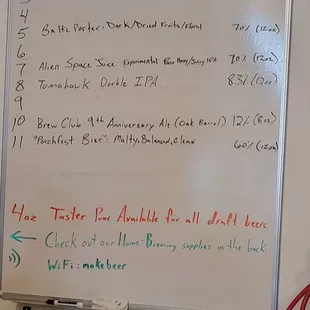 4
5 Baltic Porter: Dark/Dried Fruits/Floral 7.0% (12oz)
6
7 Alien Space Juice Experimental Hazy/Juicy IPA 7.0% (12oz)
8 Tomahawk Double IPA 8.3% (12oz)
9
10 Brew Club 9th Anniversary Ale (Oak Barrel) 12% (8oz)
11 "Porchfest Bier": Malty, Balanced, Clean 6.0% (12oz)
4oz Taster Pour Available for all draft beers
← Check out our Home-Brewing supplies in the back.
WiFi: makebeer